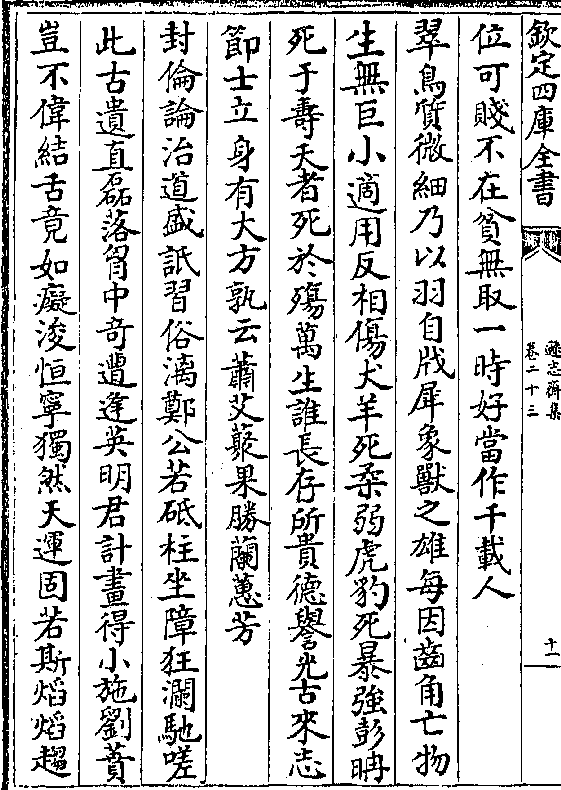 欽定四庫全書
遜志齋集
卷二十三
十一
位可賤不在貧無取一時好當作千載人
翠鳥質微細乃以羽自戕犀象獸之雄每因齒角亡物
生無巨小適用反相傷犬羊死柔弱虎豹死暴強彭聃
死于壽夭者死於殤萬生誰長存所貴德譽光古來志
節士立身有大方孰云蕭艾藂果勝蘭蕙芳
封倫論治道盛詆習俗漓鄭公若砥柱坐障狂瀾馳嗟
此古遺直磊落胷中竒遭逢英明君計畫得小施劉蕡
豈不偉結舌竟如癡浚恒寧獨然天運固若斯熖熖趨